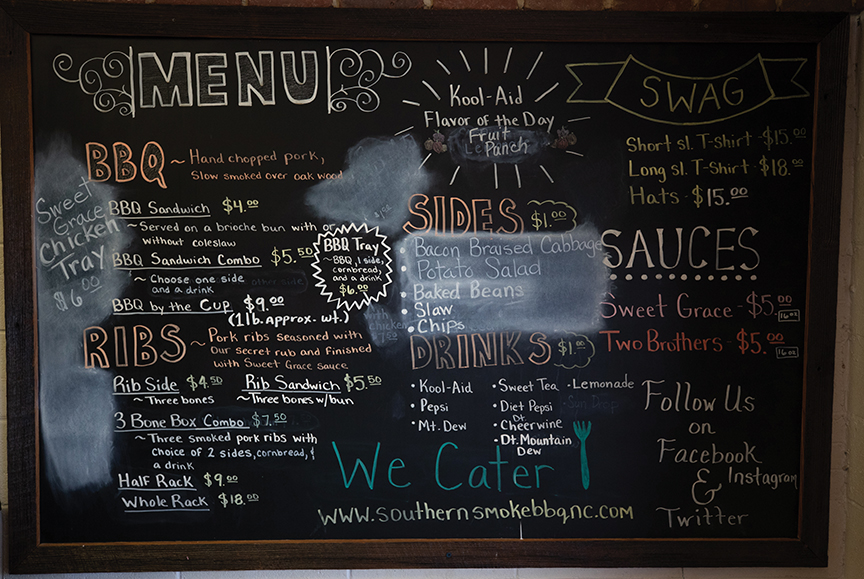 MENU
Kool-Aid
Flavor of the Day
Fruit
Panch
SWAG
Short sl. T-Shirt · $15.00
Long sl. T-Shirt · $18.00
Hats · $15.00
BBQ ~ Hand chopped pork,
Slow smoked over oak wood
Sweet
Grace
Chicken
Tray
$6.00
BBQ Sandwich $4.00
~ Served on a brioche bun with or
without coleslaw
BBQ Sandwich Combo $5.50
~ Choose one side
and a drink
BBQ by the Cup $9.00
(1lb. approx. wt.)
BBQ Tray
~ BBQ, 1 side,
cornbread,
and a drink
$6.00
RIBS ~ Pork ribs seasoned with
our secret rub and finished
with Sweet Grace sauce
Rib Side $4.50
~ Three bones
Rib Sandwich $5.50
~ Three bones w/bun
3 Bone Box Combo $7.50
~ Three smoked pork ribs with
choice of 2 sides, cornbread, &
a drink
Half Rack $9.00
Whole Rack $18.00
SIDES $1.00
• Bacon Braised Cabbage
• Potato Salad
• Baked Beans
• Slaw
• Chips
DRINKS $1.00
• Kool-Aid
• Pepsi
• Mt. Dew
• Sweet Tea
• Diet Pepsi
Dt.
• Cheerwine
• Dt. Mountain
Dew
- Lemonade
- Sun Drop
SAUCES
Sweet Grace - $5.00 16oz
Two Brothers - $5.00 16oz
We Cater
www.southernsmokebbqnc.com
Follow Us
on
Facebook
& Instagram
Twitter